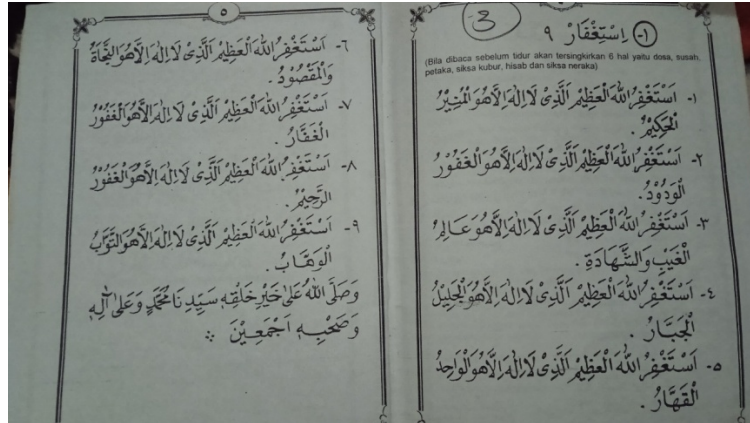 3
١- اِسْتِغْفَارْ ٩
(Bila dibaca sebelum tidur akan tersingkirkan 6 hal yaitu dosa, susah,
petaka, siksa kubur, hisab dan siksa neraka)
١- اَسْتَغْفِرُ اللهَ الْعَظِيْمَ اَلَّذِىْ لَا اِلٰهَ اِلَّا هُوَ الْمُنِيْرُ
الْحَكِيْمُ .
٢- اَسْتَغْفِرُ اللهَ الْعَظِيْمَ اَلَّذِىْ لَا اِلٰهَ اِلَّا هُوَ الْغَفُوْرُ
الْوَدُوْدُ .
٣- اَسْتَغْفِرُ اللهَ الْعَظِيْمَ اَلَّذِىْ لَا اِلٰهَ اِلَّا هُوَ عَالِمُ
الْغَيْبِ وَالشَّهَادَةِ .
٤- اَسْتَغْفِرُ اللهَ الْعَظِيْمَ اَلَّذِىْ لَا اِلٰهَ اِلَّا هُوَ الْجَلِيْلُ
الْجَبَّارُ .
٥- اَسْتَغْفِرُ اللهَ الْعَظِيْمَ اَلَّذِىْ لَا اِلٰهَ اِلَّا هُوَ الْوَاحِدُ
الْقَهَّارُ .
٥
٦- اَسْتَغْفِرُ اللهَ الْعَظِيْمَ اَلَّذِىْ لَا اِلٰهَ اِلَّا هُوَ النَّجَاةُ
وَالْمَقْصُوْدُ .
٧- اَسْتَغْفِرُ اللهَ الْعَظِيْمَ اَلَّذِىْ لَا اِلٰهَ اِلَّا هُوَ الْغَفُوْرُ
الْغَفَّارُ .
٨- اَسْتَغْفِرُ اللهَ الْعَظِيْمَ اَلَّذِىْ لَا اِلٰهَ اِلَّا هُوَ الْغَفُوْرُ
الرَّحِيْمُ .
٩- اَسْتَغْفِرُ اللهَ الْعَظِيْمَ اَلَّذِىْ لَا اِلٰهَ اِلَّا هُوَ التَّوَّابُ
الْوَهَّابُ .
وَصَلَّى اللهُ عَلٰى خَيْرِ خَلْقِهِ سَيِّدِنَا مُحَمَّدٍ وَعَلٰى اٰلِهِ
وَصَحْبِهِ اَجْمَعِيْنَ